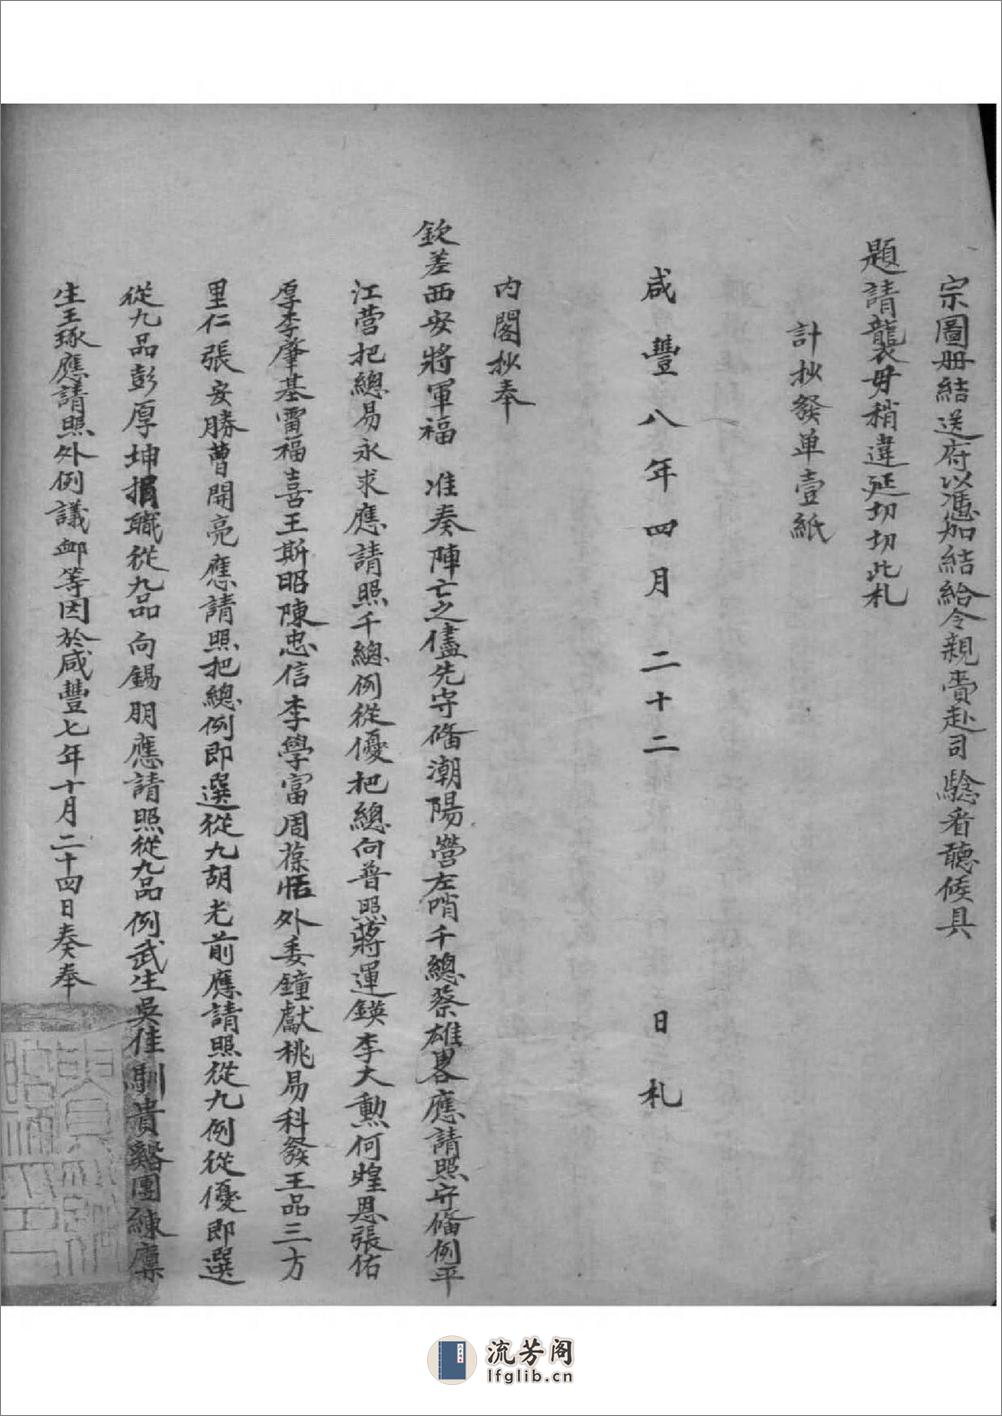 宗圖册結送府以憑加結給令親賫赴司驗看聽候具
題請襲毋稍違延切切此札
計抄發单壹紙
咸豐八年四月二十二日札
内閣抄奉
欽差西安將軍福 准奏陣亡之儘先守俻潮陽營左哨千總蔡雄畧應請照守俻例平
江营把總易永求應請照千總例從優把總向普照蔣運鍈李大勲何煌恩張佑
厚李肇基雷福喜王斯昭陳忠信李學富周葆恬外委鐘獻桃易科發王品三方
里仁張安勝曹開亮應請照把總例即選從九胡光前應請照從九例從優即選
從九品彭厚坤捐職從九品向錫朋應請照從九品例武生吳佳馴貴谿團練廪
生王琢應請照外例議卹等因於咸豐七年十月二十四日奏奉
流芳阁
lfglib.cn